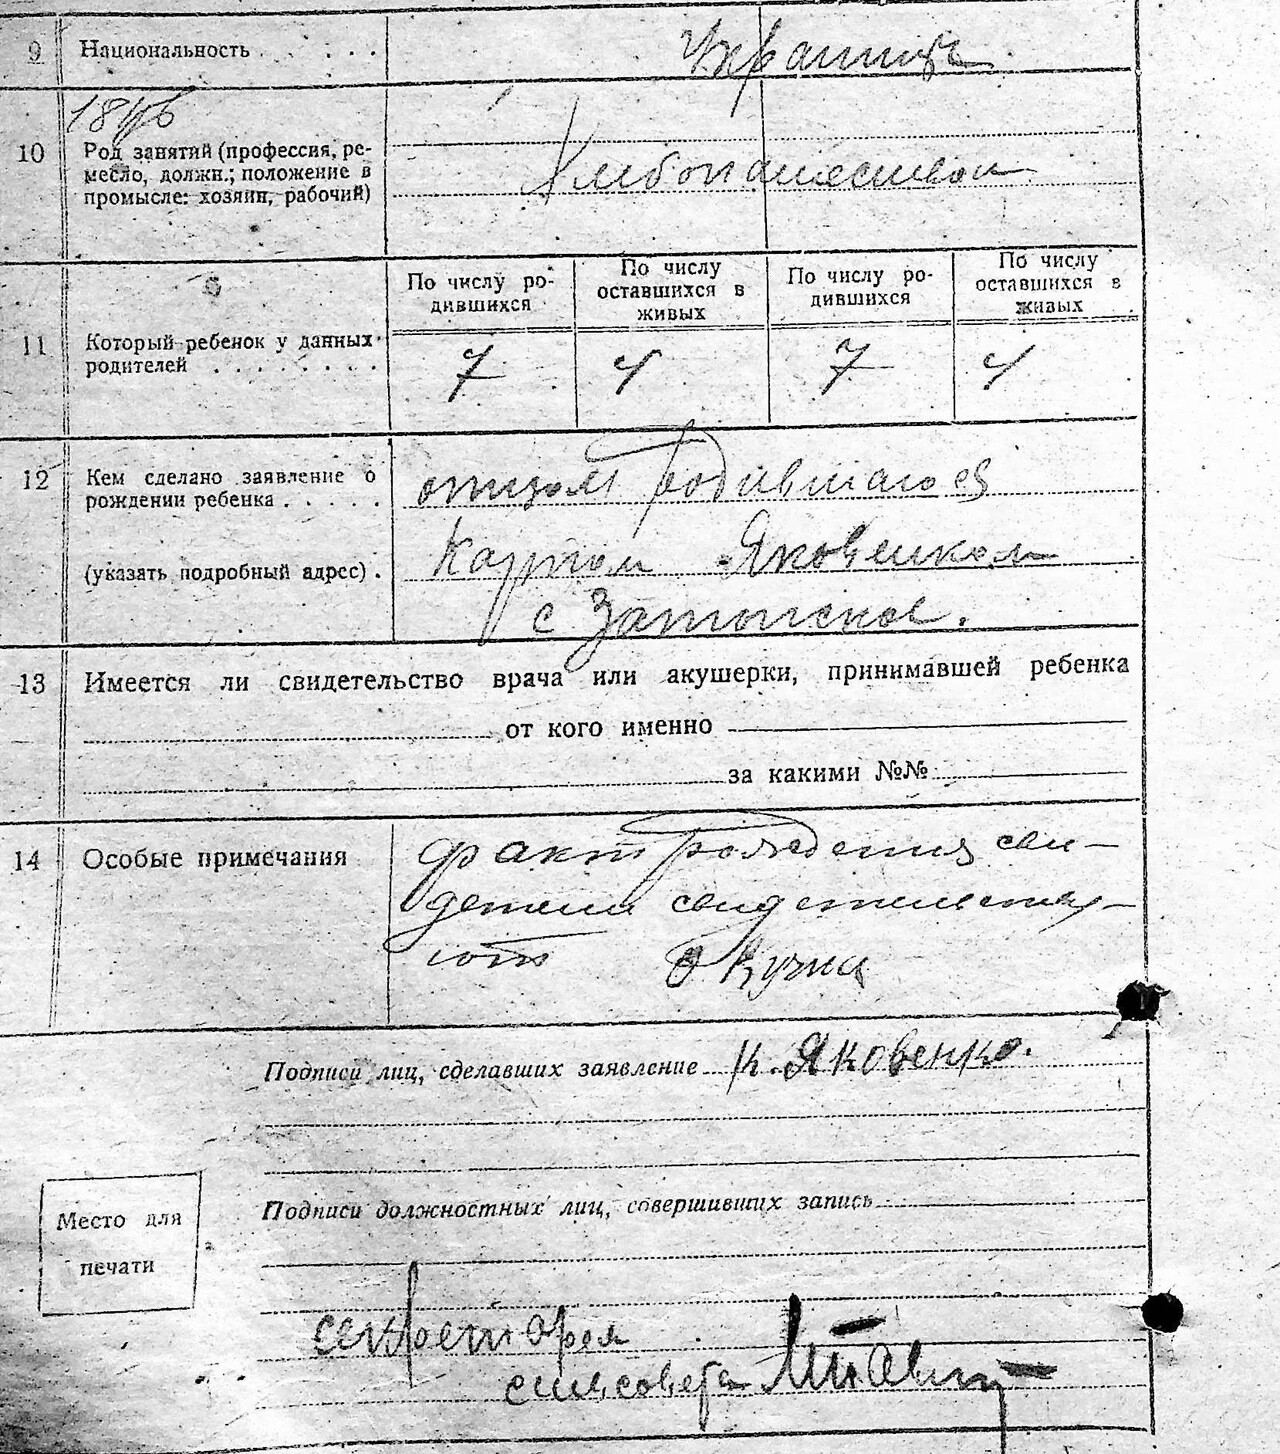 9 Национальность . . . . Украинцы
1896
10 Род занятий (профессия, ре-
месло, должн.; положение в
промысле: хозяин, рабочий)
Хлебопашеством
По числу ро-
дившихся
По числу
оставшихся в
живых
По числу ро-
дившихся
По числу
оставшихся в
живых
11 Который ребенок у данных
родителей . . . . . . . .
7 4 7 4
12 Кем сделано заявление о
рождении ребенка . . . . .
(указать подробный адрес) .
отцом родившагося
Карпом Яковенком
с Затынское.
13 Имеется ли свидетельство врача или акушерки, принимавшей ребенка
от кого именно
за какими №№
14 Особые примечания
факт рождения сви-
детели свидетельству-
ют
Подписи лиц, сделавших заявление К. Яковенко.
Подписи должностных лиц, совершивших запись
Место для
печати
секретарея
сельсовета